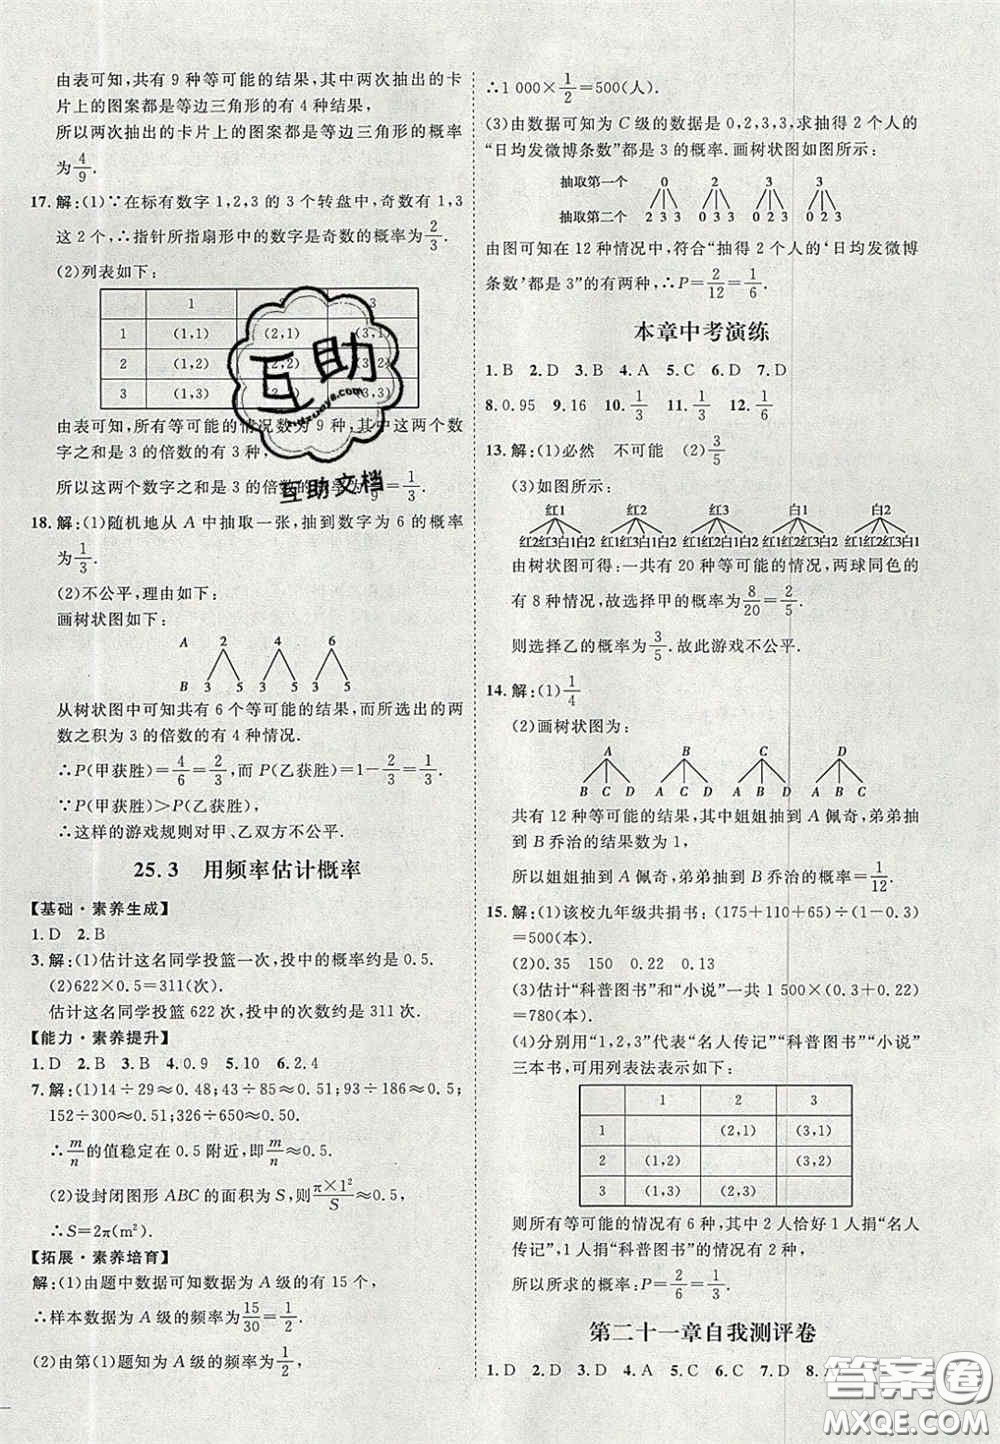 由表可知,共有 9 种等可能的结果,其中两次抽出的卡
片上的图案都是等边三角形的有 4 种结果,
所以两次抽出的卡片上的图案都是等边三角形的概率
为4/9.
17.解:(1)∵在标有数字 1,2,3 的 3 个转盘中,奇数有 1,3
这 2 个,∴指针所指扇形中的数字是奇数的概率为2/3.
(2)列表如下:
1 2 3
1 (1,1) (2,1) (3,1)
2 (1,2) (2,2) (3,2)
3 (1,3) (2,3) (3,3)
由表可知,所有等可能的情况数为 9 种,其中这两个数
字之和是 3 的倍数的有 3 种,
所以这两个数字之和是 3 的倍数的概率为3/9=1/3.
18.解:(1)随机地从 A 中抽取一张,抽到数字为 6 的概率
为1/3.
(2)不公平,理由如下:
画树状图如下:
A 2 4 6
B 3 5 3 5 3 5
从树状图中可知共有 6 个等可能的结果,而所选出的两
数之积为 3 的倍数的有 4 种情况.
∴P(甲获胜)=4/6=2/3,而 P(乙获胜)=1-2/3=1/3.
∵P(甲获胜)>P(乙获胜),
∴这样的游戏规则对甲、乙双方不公平.
25.3 用频率估计概率
【基础·素养生成】
1.D 2.B
3.解:(1)估计这名同学投篮一次,投中的概率约是 0.5.
(2)622×0.5=311(次).
估计这名同学投篮 622 次,投中的次数约是 311 次.
【能力·素养提升】
1.D 2.B 3.B 4.0.9 5.10 6.2.4
7.解:(1)14÷29≈0.48;43÷85≈0.51;93÷186=0.5;
152÷300≈0.51;326÷650≈0.5.
∴m/n的值稳定在 0.5 附近,即m/n≈0.5.
(2)设封闭图形 ABC 的面积为 S,则π×1²/S=0.5,
∴S=2π(m²)
【拓展·素养培育】
解:(1)由题中数据可知数据为 A 级的有 15 个,
∴样本数据为 A 级的频率为15/30=1/2.
(2)由第(1)题知为 A 级的频率为1/2,
∴1 000×1/2=500(人).
(3)由数据可知为 C 级的数据是 0,2,3,3,求抽得 2 个人的
“日均发微博条数”都是 3 的概率.画树状图如图所示:
抽取第一个 0 2 3 3
抽取第二个 2 3 3 0 3 3 0 2 3 0 2 3
由图可知在 12 种情况中,符合“抽得 2 个人的‘日均发微博
条数’都是 3”的有两种,∴P=2/12=1/6.
本章中考演练
1.B 2.D 3.B 4.A 5.C 6.D 7.D
8.0.95 9.16 10.1/3 11.1/3 12.1/6
13.解:(1)必然 不可能 (2)3/5
(3)如图所示:
红1 红2 红3 白1 白2
红2红3白1白2 红1红3白1白2 红1红2白1白2 红1红2红3白2 红1红2红3白1
由树状图可得:一共有 20 种等可能的情况,两球同色的
有 8 种情况,故选择甲的概率为8/20=2/5.
则选择乙的概率为3/5.故此游戏不公平.
14.解:(1)1/4
(2)画树状图为:
A B C D
B C D A C D A B D A B C
共有 12 种等可能的结果数,其中姐姐抽到 A 佩奇,弟弟抽
到 B 乔治的结果数为 1,
所以姐姐抽到 A 佩奇,弟弟抽到 B 乔治的概率=1/12.
15.解:(1)该校九年级共捐书:(175+110+65)÷(1-0.3)
=500(本).
(2)0.35 150 0.22 0.13
(3)估计“科普图书”和“小说”一共 1 500×(0.3+0.22)
=780(本).
(4)分别用“1,2,3”代表“名人传记”“科普图书”“小说”
三本书,可用列表法表示如下:
1 2 3
1 (2,1) (3,1)
2 (1,2) (3,2)
3 (1,3) (2,3)
则所有等可能的情况有 6 种,其中 2 人恰好 1 人捐“名人
传记”,1 人捐“科普图书”的情况有 2 种,
所以所求的概率:P=2/6=1/3.
第二十一章自我测评卷
1.D 2.D 3.D 4.A 5.C 6.C 7.D 8.A
互助
互助文档
答案圈
MXQE.COM